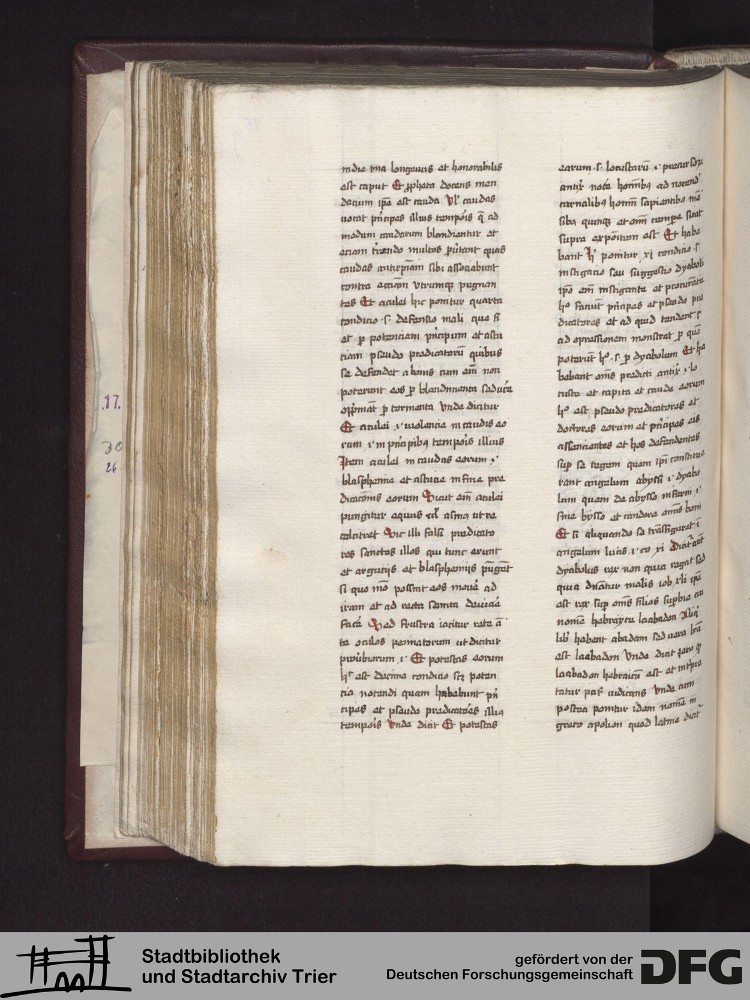 .17.
26
mdie ma longeuus et honorabilis
est caput Et ꝓpheta docens men
dacium ip̄e est cauda Vl' caudas
uocat p̄ncipes illius tempois q̄ ad
modum caudarum blandientur et
eciam multos quos
caudas antixp̄iam sibi associabunt
contra aciam utrumqꝫ pugnan
tes Et aculei hic ponitur quarta
condicio .s. defensio mali que
et ꝑ potenciam p̄ncipum et astu
ciam pseudo predicatorū quibus
se defendet a bonis cum em̄ non
poterunt eos ꝑ blandimenta
ꝑ tormenta Vnde dicitur
Et aculei .i. uiolencia in caudis eo
rum .i. in principibꝰ tempois illius
Item aculei in caudis eorum .i.
blasphemia et astucia in fine pre
dicacōnis eorum Sicut em̄ aculei
pungitur equus ul' asinus ut re
calcitret Sic illi falsi predicato
res sanctos illos qui tunc erunt
et argutiis et blasphemiis
si quo mō possint eos mouē ad
iram et ad recta semita deuiare
Sed frustra iacitur rete a
te oculos pennatorum ut dicitur
prouerbiorum .i. Et potestas eorum
est decima condicio scꝫ poten
cia nocendi quam habebunt p̄n
cipes et pseudo predicatoēs illiꝰ
tempois Vnde dicit Et potestas
earum .s. locustarū .i. precursorum
noce hominibꝰ ad nocend'
carnalibꝰ homīn sapientibus
quinqꝫ et omni tempore sicut
supra expōitum est Et habe
bant ponitur xi condicio .s.
instigacio seu suggestio dyaboli
ip̄o em̄ instigante et procurante
faciunt p̄ncipes et pseudo pre
dicatores et ad quid tendent .s.
ad opressionem monstrat ꝑ que
poterunt .s. ꝑ dyabolum Et ha
bebant predicti antix .i. lo
custe et capita et caude eorum
est pseudo predicatores et
doctores eorum et p̄ncipes eis
assencientes et hos defendentes
sup se regem quem ip̄i constitue
rant angelum abyssi .i. dyabo
lum quem de abysso inferni .i.
sine bysso et candore
Et si aliquando se trāsfiguret
angelum lucis .i. co xi Dicit aūt
dyabolus rex non quia regat sed
quia malis iob xli ip̄e
est rex sup om̄s filios supbie cui
nomē hebrayce laabadon
libri habent abadam sed uera
est laabadon Vnde dicit
laabadon hebraicū est et
tatur uidicans Vnde cum
postea ponitur idem nomē in
greco apolion quod latine dicit'
Stadtbibliothek
und Stadtarchiv Trier
gefördert von der
Deutschen Forschungsgemeinschaft
DFG